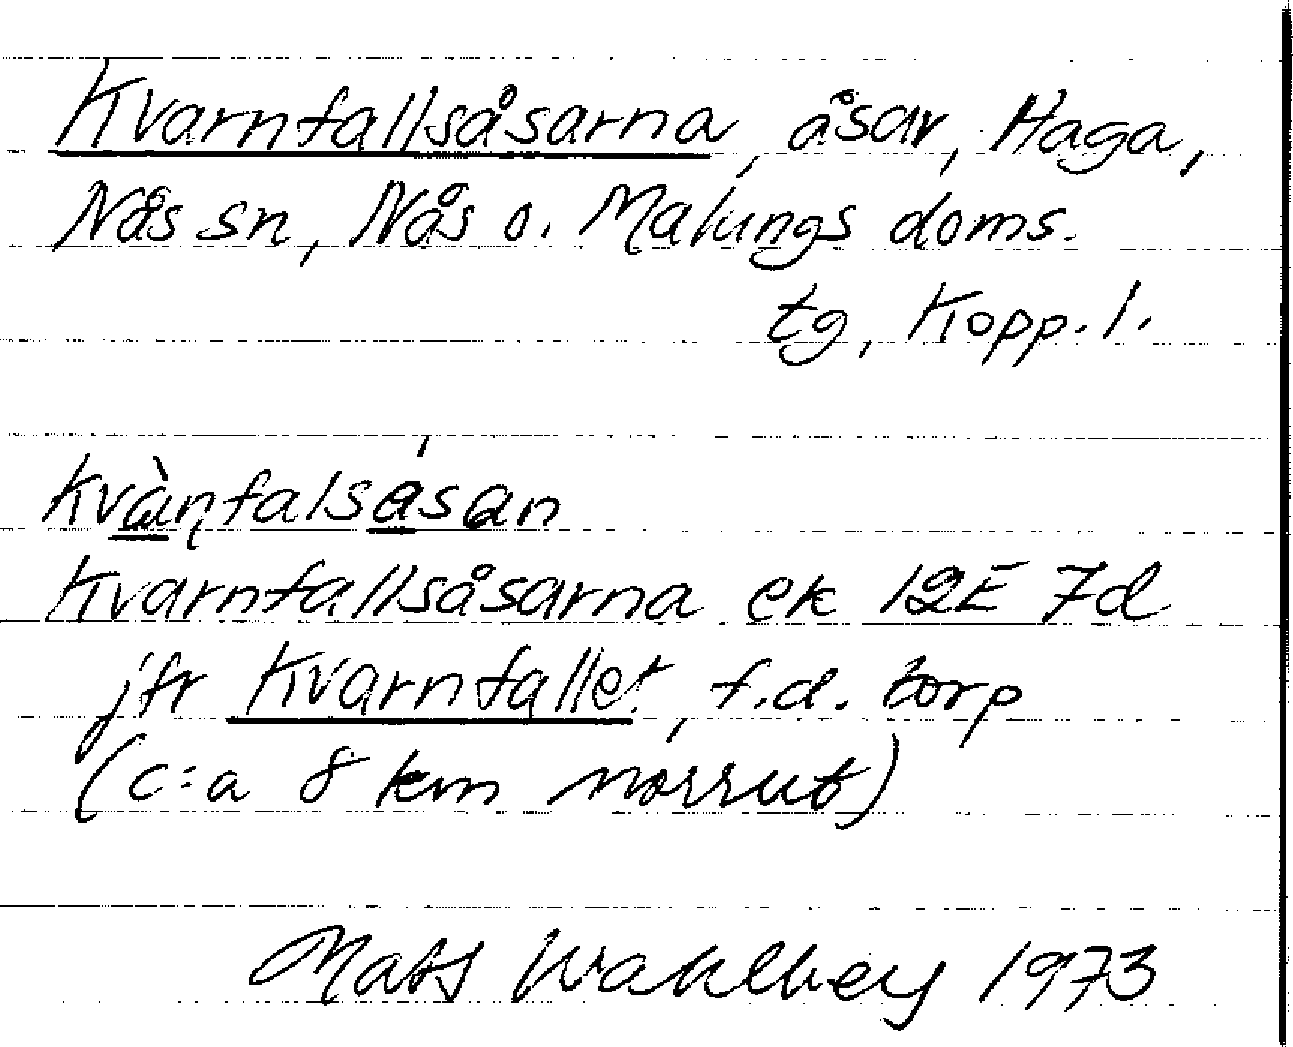 Kvarnfallsåsarna, åsar, Haga,
Nås sn, Nås o. Malungs doms.
tg, Kopp. l.
kvàṇfalsásan
Kvarnfallsåsarna ek 12E 7d
jfr Kvarnfallet, f.d. torp
(c:a 8 km norrut)
Mats Wahlberg 1973